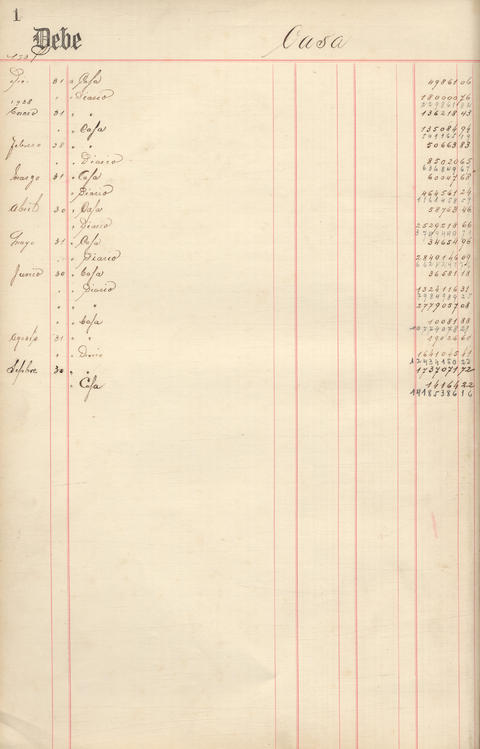 1
Debe Casa
1937
Dic. 31 " Caja 49861 06
" " Diario 180000 76
1938 229861 82
Enero 31 " " 136218 43
" " Caja 135084 94
Febrero 28 " " 50663 83
" " Diario 85020 65
Marzo 31 " Caja 60047 68
" Diario 464561 24
Abril 30 " Caja 58763 46
" Diario 2529218 66
Mayo 31 " Caja 34654 96
" " Diario 2840146 09
Junio 30 " Caja 36581 18
" " Diario 132411 631
" " " 277905 708
" " Caja 10081 88
Agosto 31 " " 19026 60
" " Diario 1641045 41
Sepbre 30 " " 1737071 72
" Caja 14164 22
14185386 16